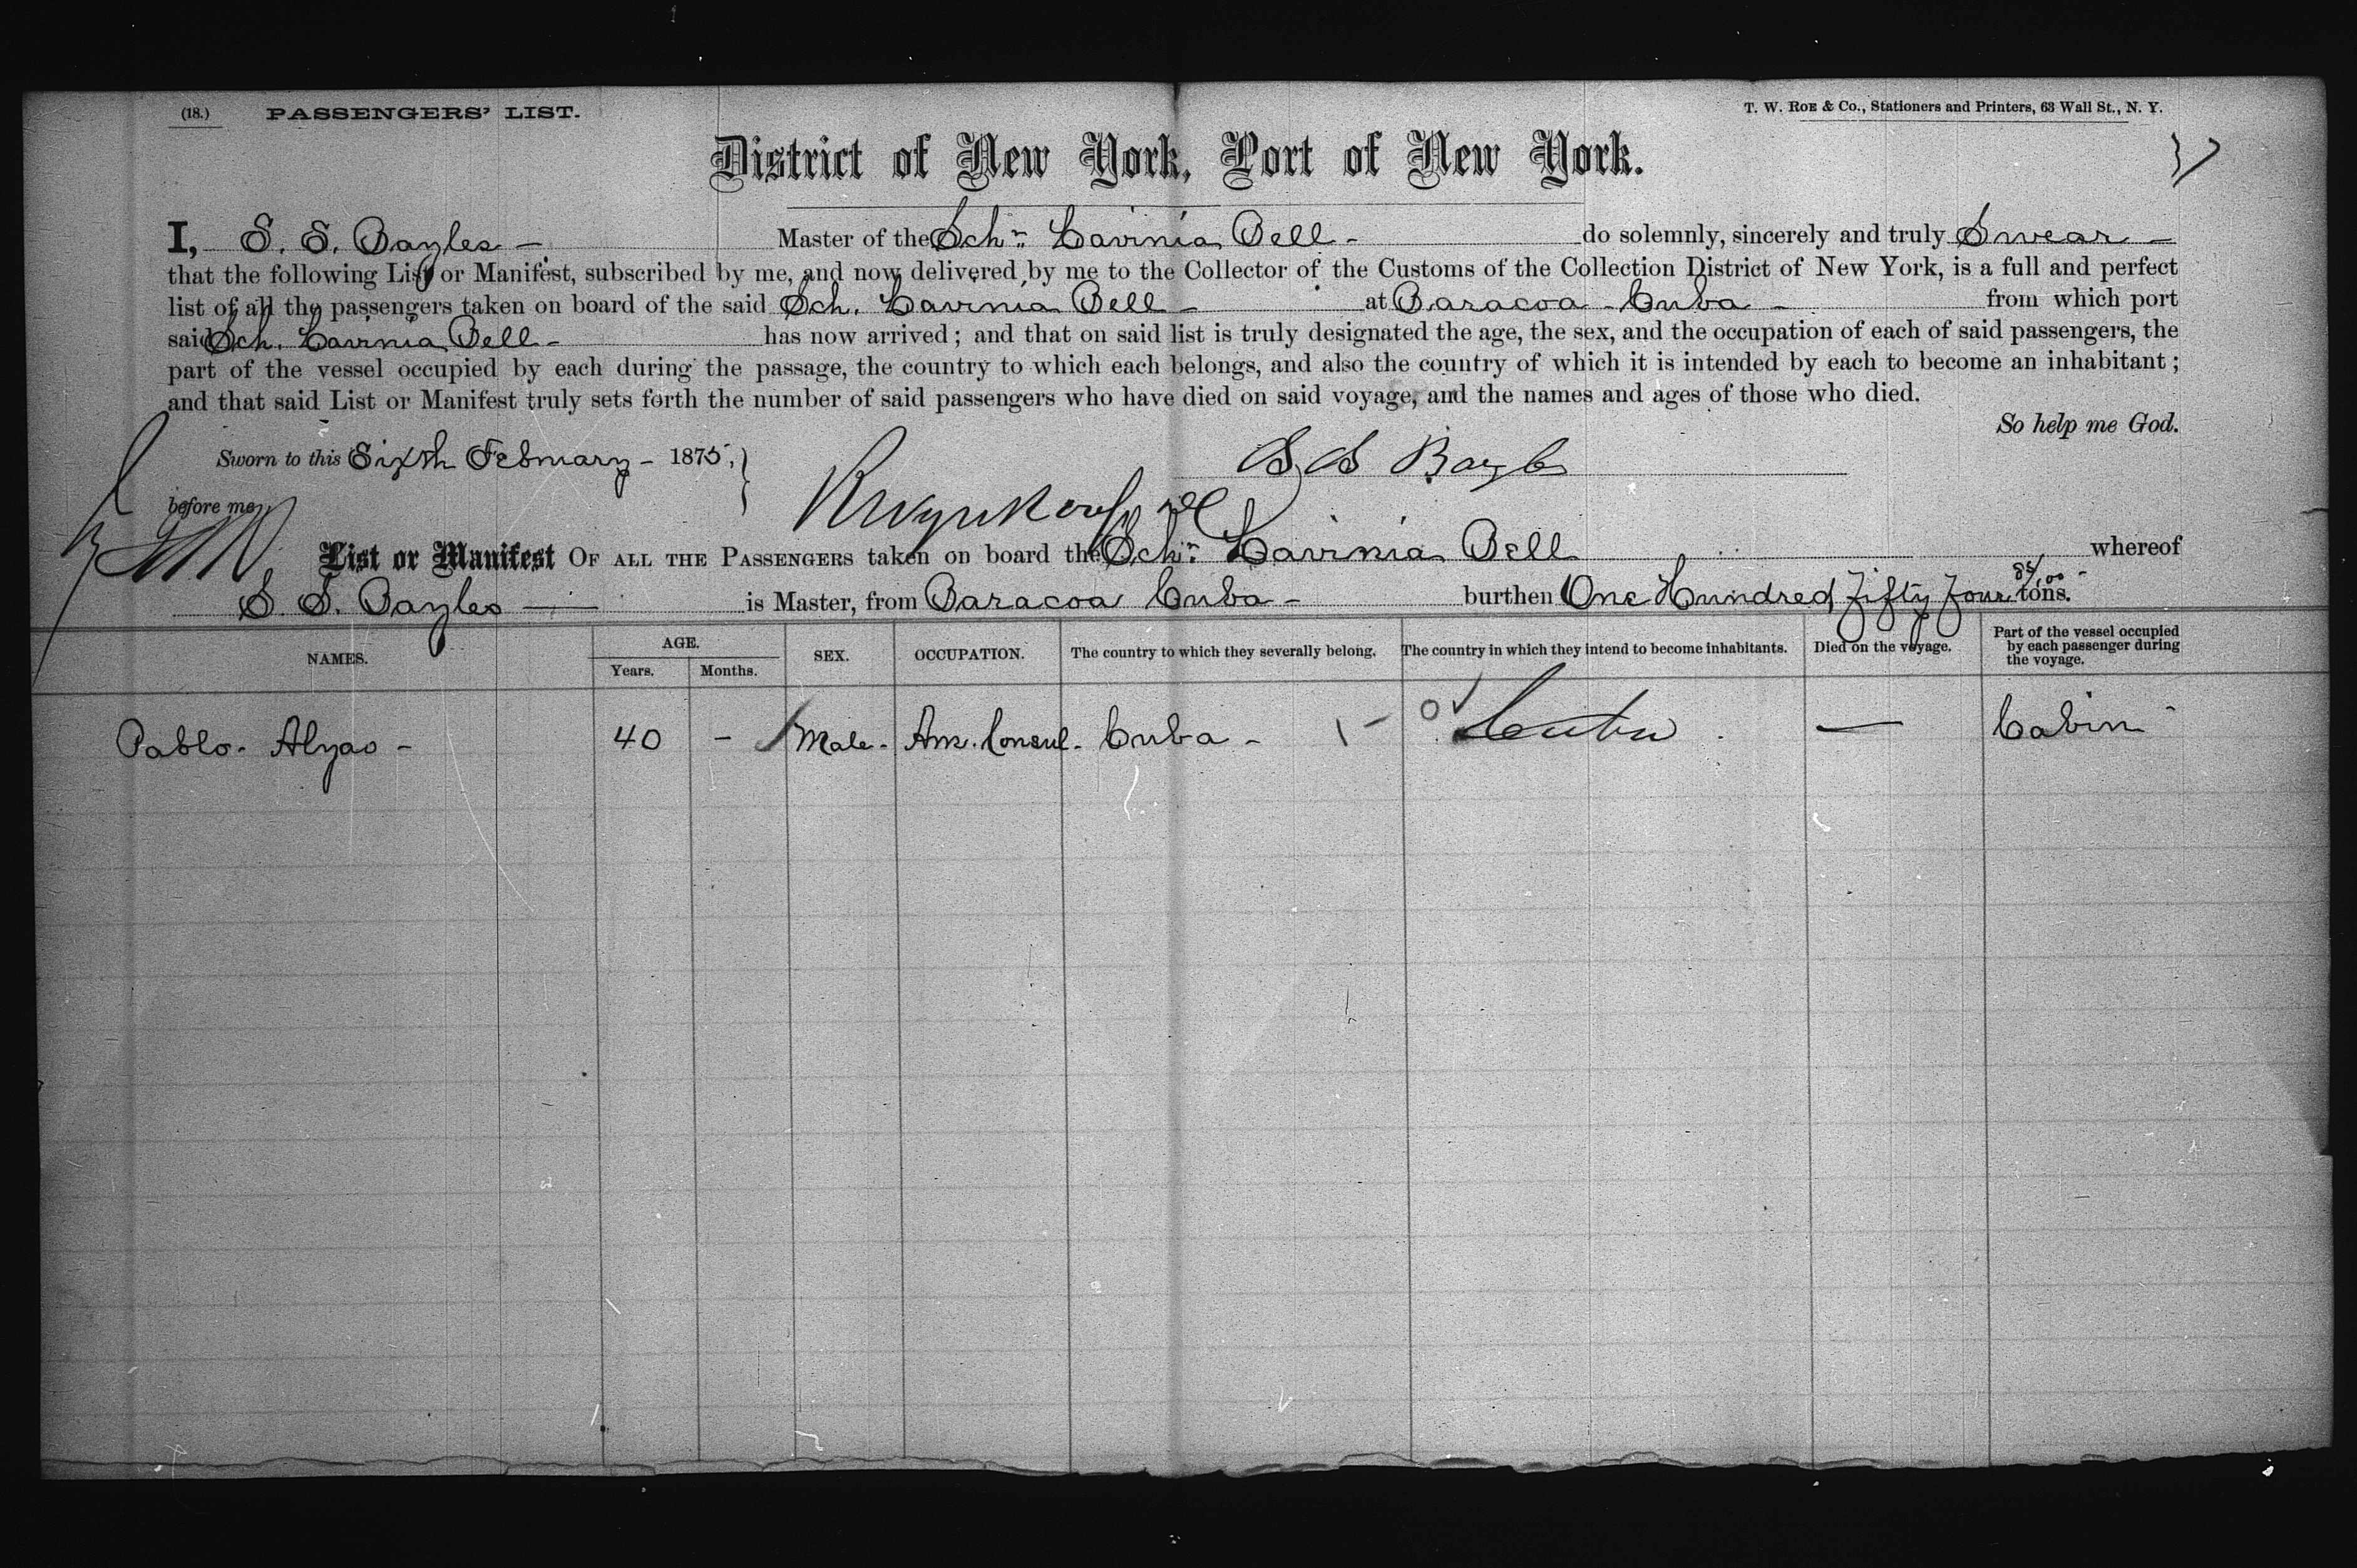 (18.) PASSENGERS' LIST. T. W. ROE & Co., Stationers and Printers, 63 Wall St., N. Y.
District of New York, Port of New York.
I, S. S. Bayles - Master of the Schr. Lavinia Bell - do solemnly, sincerely and truly Swear -
that the following List or Manifest, subscribed by me, and now delivered by me to the Collector of the Customs of the Collection District of New York, is a full and perfect
list of all the passengers taken on board of the said Sch. Lavinia Bell - at Baracoa - Cuba - from which port
said Sch. Lavinia Bell - has now arrived; and that on said list is truly designated the age, the sex, and the occupation of each of said passengers, the
part of the vessel occupied by each during the passage, the country to which each belongs, and also the country of which it is intended by each to become an inhabitant;
and that said List or Manifest truly sets forth the number of said passengers who have died on said voyage, and the names and ages of those who died.
So help me God.
Sworn to this Sixth February - 1875, S S Bayles
before me
List or Manifest OF ALL THE PASSENGERS taken on board the Schr. Lavinia Bell whereof
S S. Bayles is Master, from Baracoa Cuba - burthen One Hundred fifty four tons.
NAMES. AGE. Years. Months. SEX. OCCUPATION. The country to which they severally belong. The country in which they intend to become inhabitants. Died on the voyage. Part of the vessel occupied by each passenger during the voyage.
Pablo - Alyao - 40 - Male - Am. Consul - Cuba - Cuba - Cabin -